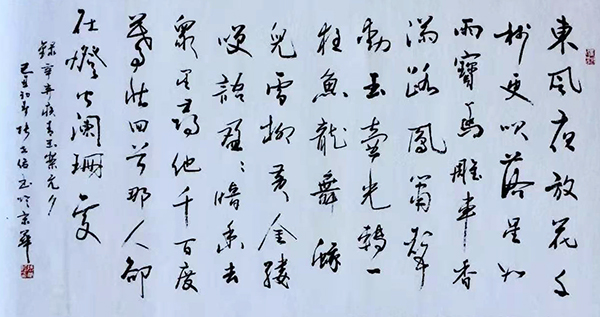 東風夜放花千
樹更吹落星如
雨寶馬雕車香
滿路鳳簫聲
動玉壺光轉一
夜魚龍舞蛾
兒雪柳黃金縷
笑語盈〻暗香去
眾里尋他千百度
驀然回首那人卻
在燈火闌珊處
錄辛棄疾青玉案元夕
己丑初冬書於京華